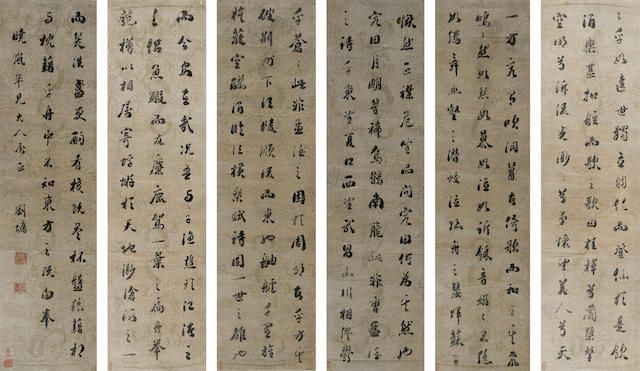 乎如遺世獨立羽化而登仙於是飲
酒樂甚扣舷而歌之歌曰桂棹兮蘭槳擊
空明兮泝流光渺渺兮予懷望美人兮天
一方客有吹洞簫者倚歌而和之其聲
嗚嗚然如怨如慕如泣如訴餘音嫋嫋不絕
如縷舞幽壑之潛蛟泣孤舟之嫠婦蘇子
愀然正襟危坐而問客曰何為其然也
客曰月明星稀烏鵲南飛此非曹孟德
之詩乎東望夏口西望武昌山川相繆鬱
乎蒼蒼此非孟德之困於周郎者乎方其
破荊州下江陵順流而東也舳艫千里旌
旗蔽空釃酒臨江橫槊賦詩固一世之雄也
而今安在哉況吾與子漁樵於江渚之
上侶魚蝦而友麋鹿駕一葉之扁舟舉
匏樽以相屬寄蜉蝣於天地渺滄海之一
而笑洗盞更酌肴核既盡杯盤狼藉相
與枕籍乎舟中不知東方之既白
曉風年兄大人屬正 劉墉